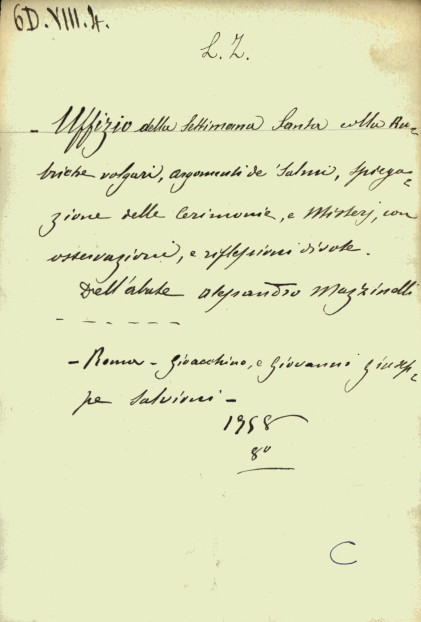 6D.VIII.4.
L. Z.
- Uffizio della Settimana Santa colla Ru=
briche volgari, argomenti de' Salmi, spiega=
zione delle Cerimonie, e Misterj, con
osservazioni, e riflessioni divote.
Dell'Abate Alessandro Mazzinelli
- - - - - -
- Roma - Gioacchino, e Giovanni Giusep=
pe Salvioni -
1758
8º
C